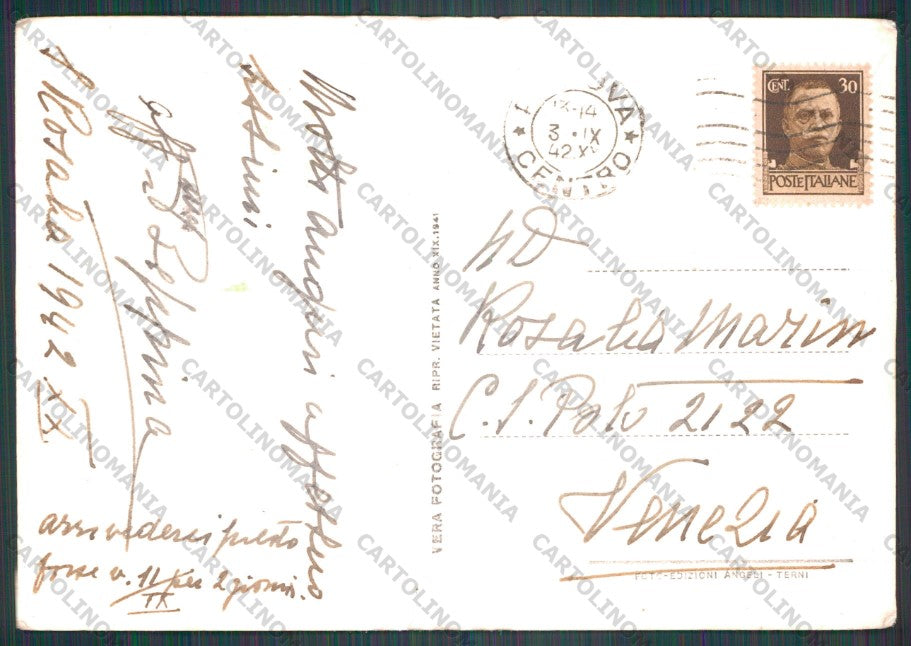 Molti auguri affettuo
sissimi
aff
Beppina
S Rosalia 1942 XX
arrivederci presto
forse v. 11/IX per 2 giorni.
VERA FOTOGRAFIA RIPR. VIETATA ANNO XIX.1941
IX-14
3 . IX
42.XX
CENTRO
CENT. 30
POSTE ITALIANE
ND
Rosalia Marin
C. S. Polo 2122
Venezia
FOTO-EDIZIONI ANGELI - TERNI
CARTOLINOMANIA